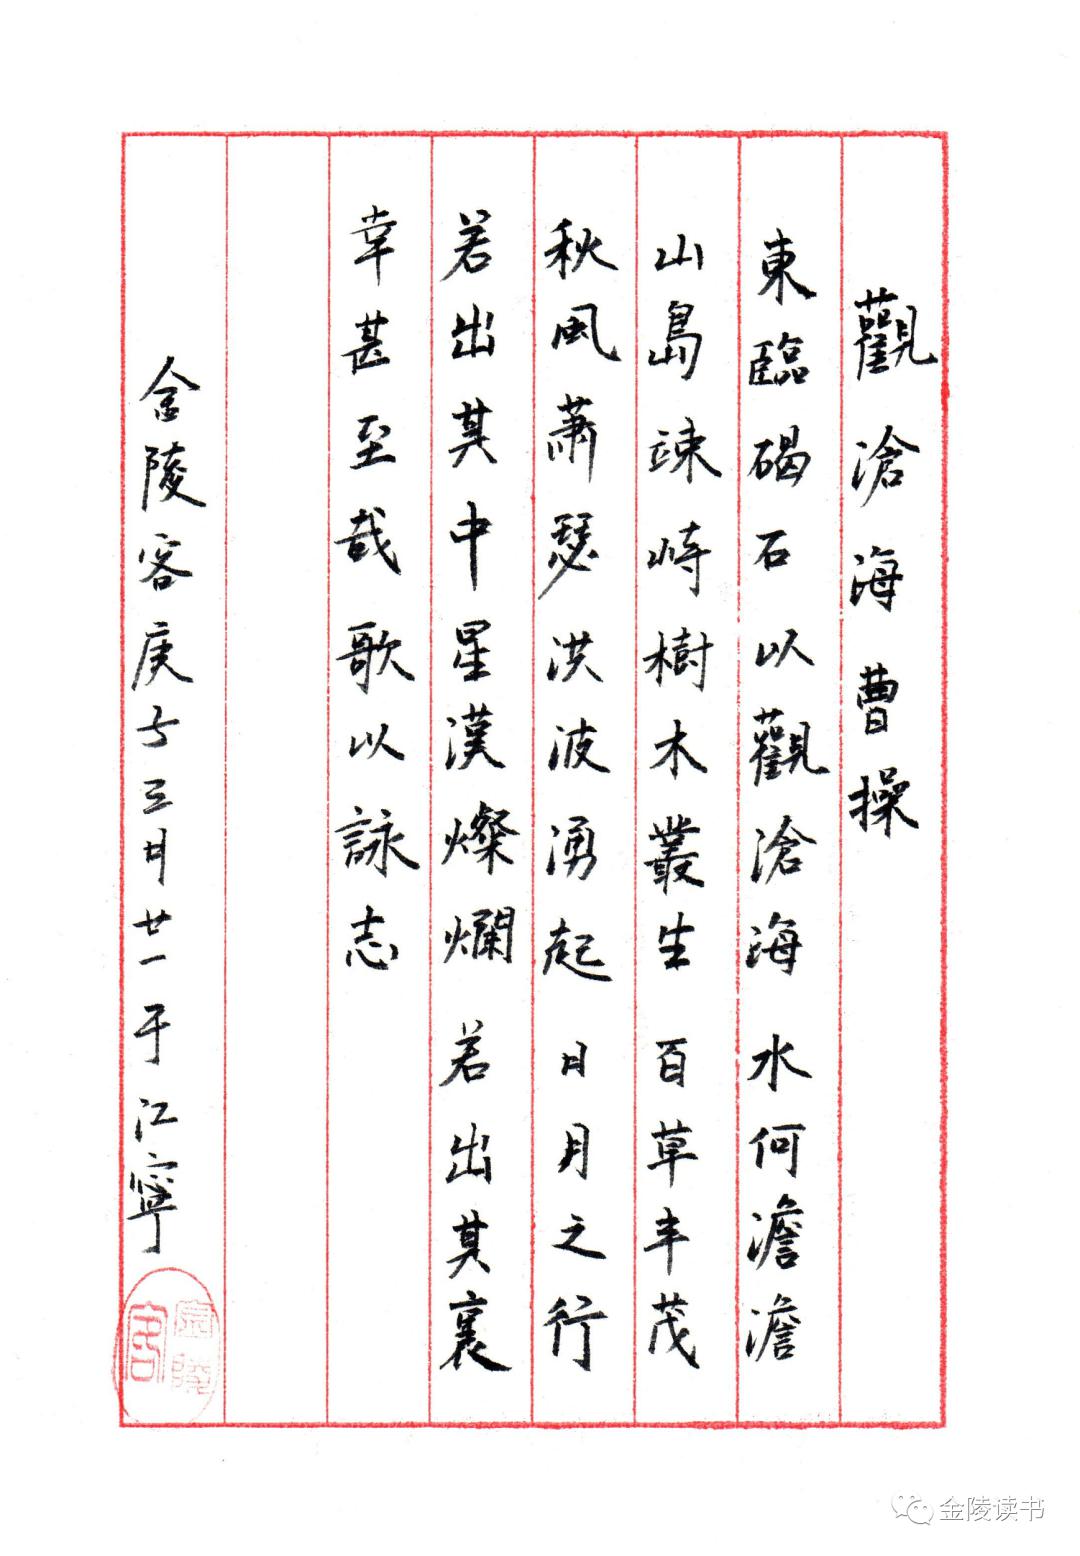 觀滄海 曹操
東臨碣石以觀滄海 水何澹澹
山島竦峙樹木叢生 百草丰茂
秋風蕭瑟洪波湧起 日月之行
若出其中星漢燦爛 若出其裏
幸甚至哉歌以詠志
金陵客庚子三月廿一于江寧
金陵客
金陵读书